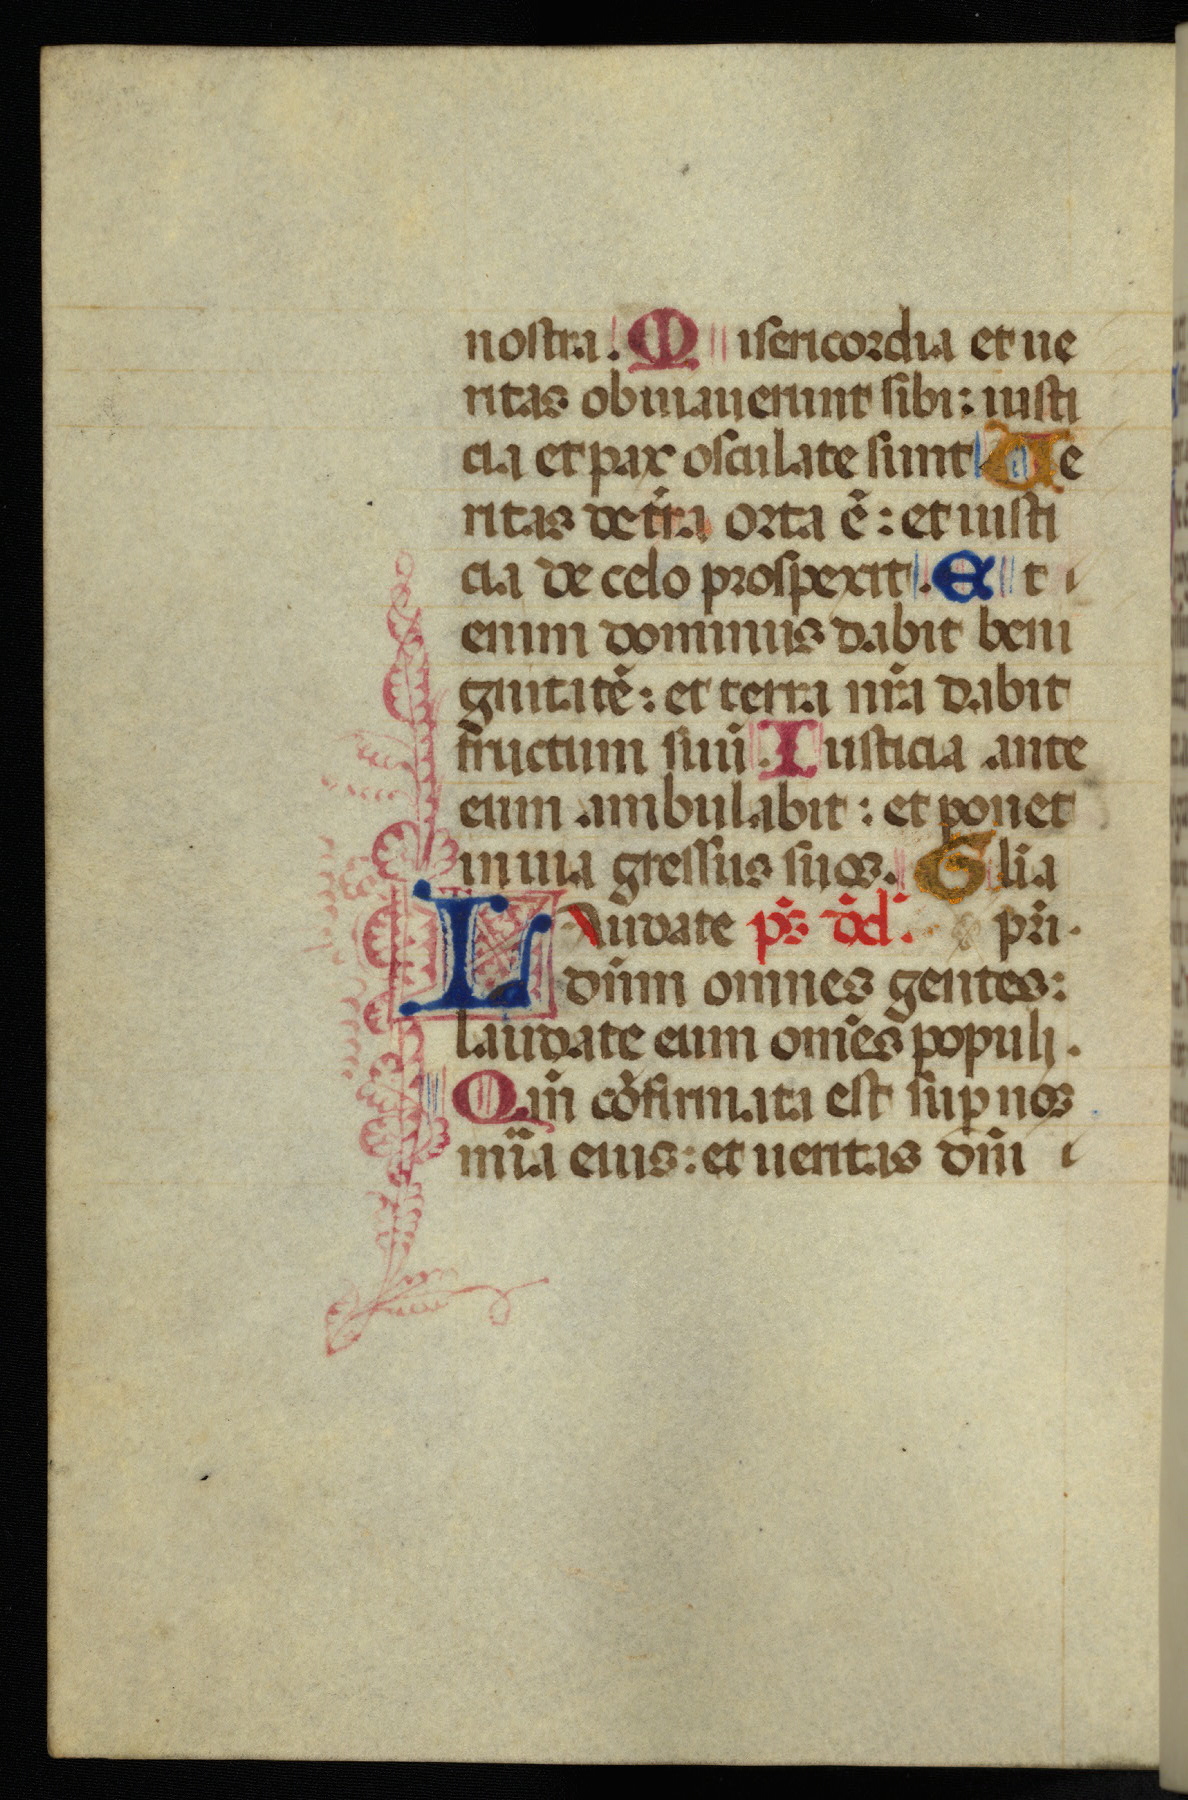 nostra. Misericordia et ue
ritas obuiauerunt sibi: iusti
cia et pax osculate sunt Ue
ritas de tr̃a orta ẽ: et iusti
cia de celo prospexit. Et
enim dominus dabit beni
gnitatẽ: et terra nr̃a dabit
fructum suũ. Iusticia ante
eum ambulabit: et ponet
in uia gressus suos. Glia pri.
Laudate ps̃ dd̃.
dñm omnes gentes:
laudate eum om̃es populi.
Qm̃ cõfirmata est sup nos
mĩa eius: et ueritas dñi